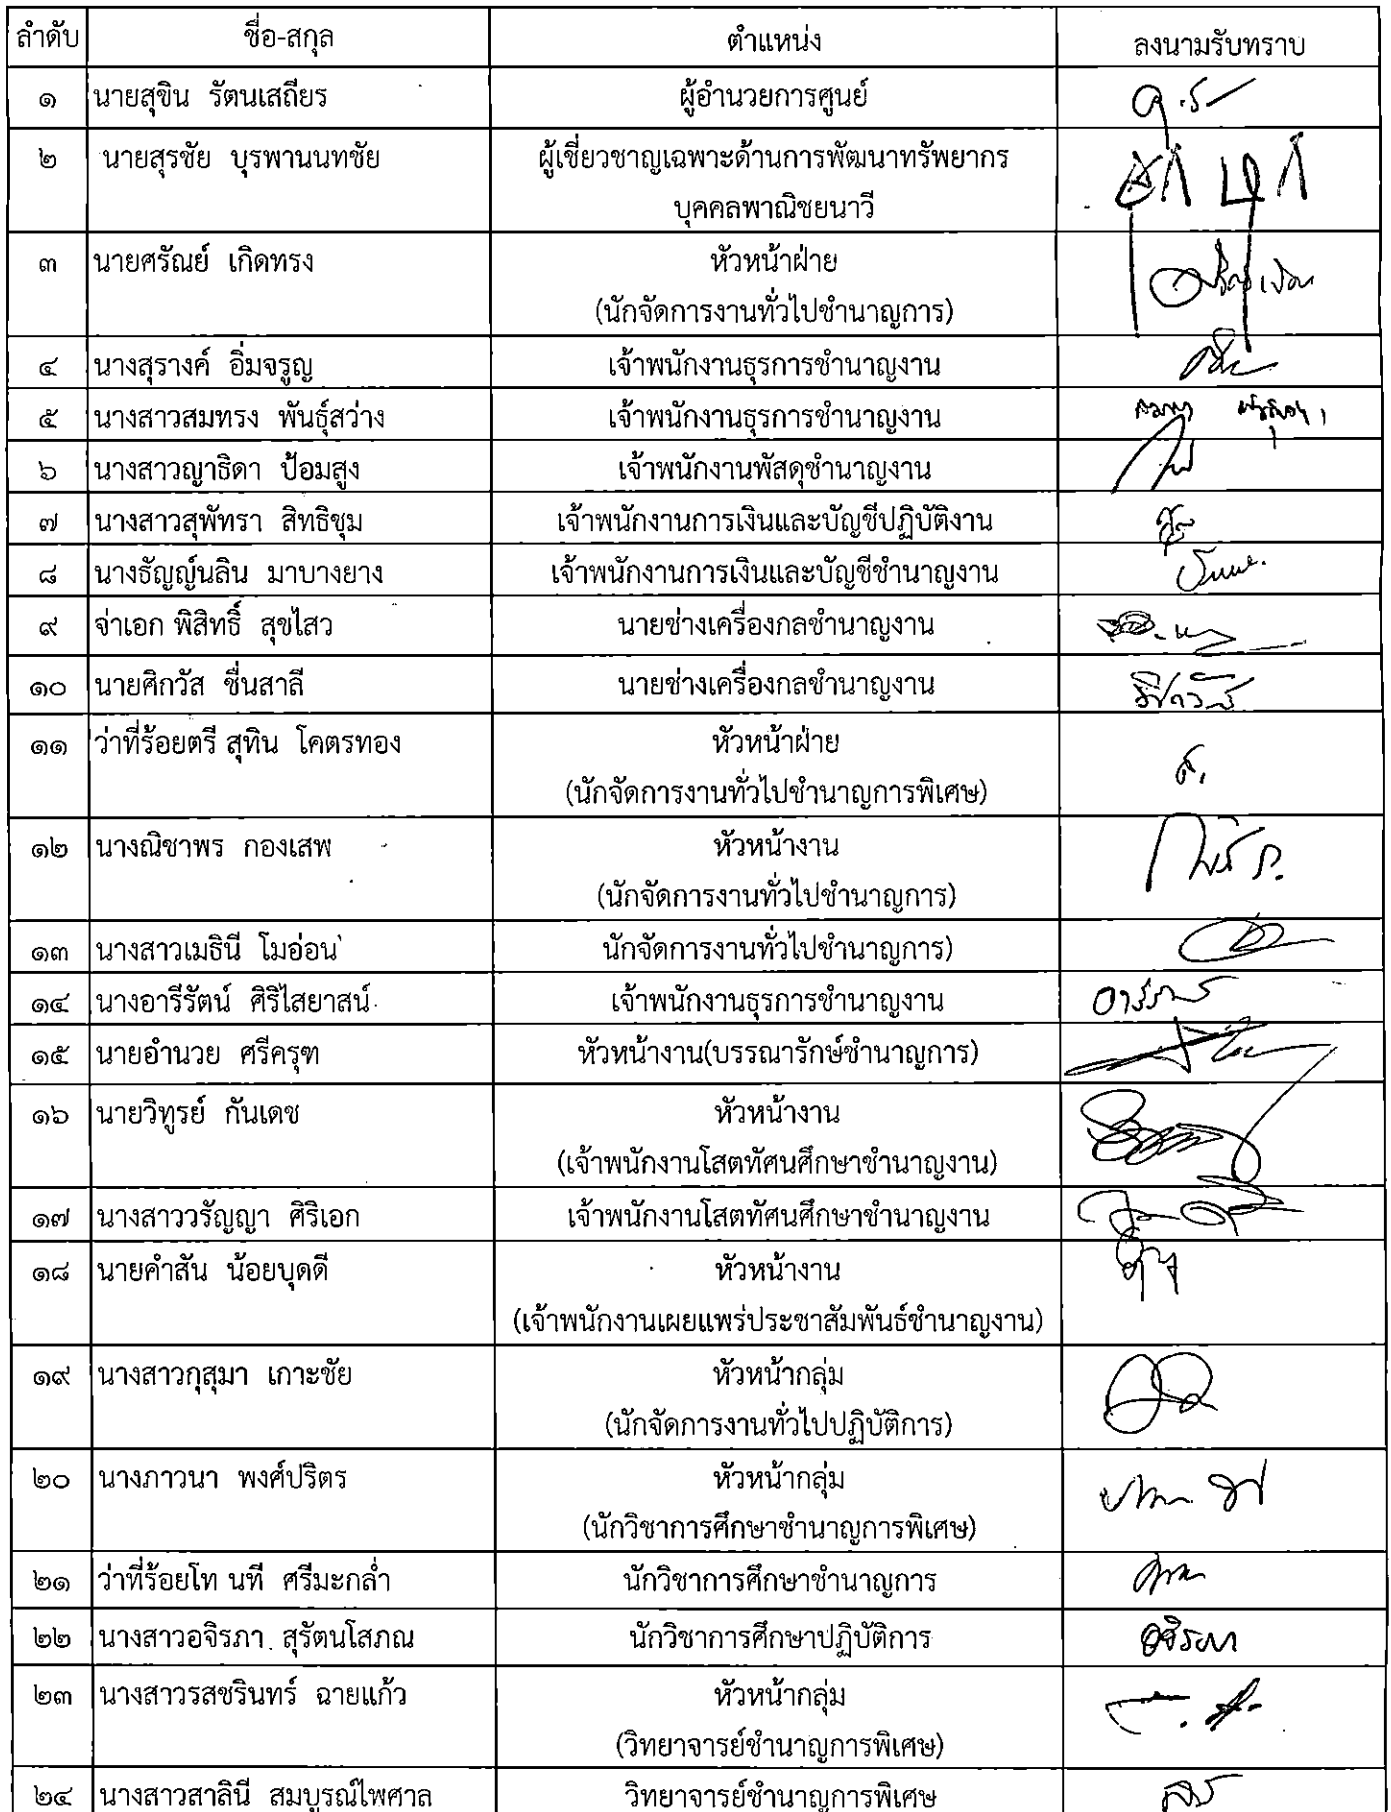 ลำดับ ชื่อ-สกุล ตำแหน่ง ลงนามรับทราบ
๑ นายสุขิน รัตนเสถียร ผู้อำนวยการศูนย์
๒ นายสุรชัย บุรพานนทชัย ผู้เชี่ยวชาญเฉพาะด้านการพัฒนาทรัพยากร
บุคคลพาณิชยนาวี
๓ นายศรัณย์ เกิดทรง หัวหน้าฝ่าย
(นักจัดการงานทั่วไปชำนาญการ)
๔ นางสุรางค์ อิ่มจรูญ เจ้าพนักงานธุรการชำนาญงาน
๕ นางสาวสมทรง พันธุ์สว่าง เจ้าพนักงานธุรการชำนาญงาน
๖ นางสาวญาธิดา ป้อมสูง เจ้าพนักงานพัสดุชำนาญงาน
๗ นางสาวสุพัทรา สิทธิชุม เจ้าพนักงานการเงินและบัญชีปฏิบัติงาน
๘ นางธัญญ์นลิน มาบางยาง เจ้าพนักงานการเงินและบัญชีชำนาญงาน
๙ จ่าเอก พิสิทธิ์ สุขไสว นายช่างเครื่องกลชำนาญงาน
๑๐ นายศิกวัส ชื่นสาลี นายช่างเครื่องกลชำนาญงาน
๑๑ ว่าที่ร้อยตรี สุทิน โคตรทอง หัวหน้าฝ่าย
(นักจัดการงานทั่วไปชำนาญการพิเศษ)
๑๒ นางณิชาพร กองเสพ หัวหน้างาน
(นักจัดการงานทั่วไปชำนาญการ)
๑๓ นางสาวเมธินี โมอ่อน นักจัดการงานทั่วไปชำนาญการ)
๑๔ นางอารีรัตน์ ศิริไสยาสน์ เจ้าพนักงานธุรการชำนาญงาน
๑๕ นายอำนวย ศรีครุฑ หัวหน้างาน(บรรณารักษ์ชำนาญการ)
๑๖ นายวิทูรย์ กันเดช หัวหน้างาน
(เจ้าพนักงานโสตทัศนศึกษาชำนาญงาน)
๑๗ นางสาววรัญญา ศิริเอก เจ้าพนักงานโสตทัศนศึกษาชำนาญงาน
๑๘ นายคำสัน น้อยบุดดี หัวหน้างาน
(เจ้าพนักงานเผยแพร่ประชาสัมพันธ์ชำนาญงาน)
๑๙ นางสาวกุสุมา เกาะชัย หัวหน้ากลุ่ม
(นักจัดการงานทั่วไปปฏิบัติการ)
๒๐ นางภาวนา พงศ์ปริตร หัวหน้ากลุ่ม
(นักวิชาการศึกษาชำนาญการพิเศษ)
๒๑ ว่าที่ร้อยโท นที ศรีมะกล่ำ นักวิชาการศึกษาชำนาญการ
๒๒ นางสาวอจิรภา สุรัตนโสภณ นักวิชาการศึกษาปฏิบัติการ อจิรภา
๒๓ นางสาวรสชรินทร์ ฉายแก้ว หัวหน้ากลุ่ม
(วิทยาจารย์ชำนาญการพิเศษ)
๒๔ นางสาวสาลินี สมบูรณ์ไพศาล วิทยาจารย์ชำนาญการพิเศษ